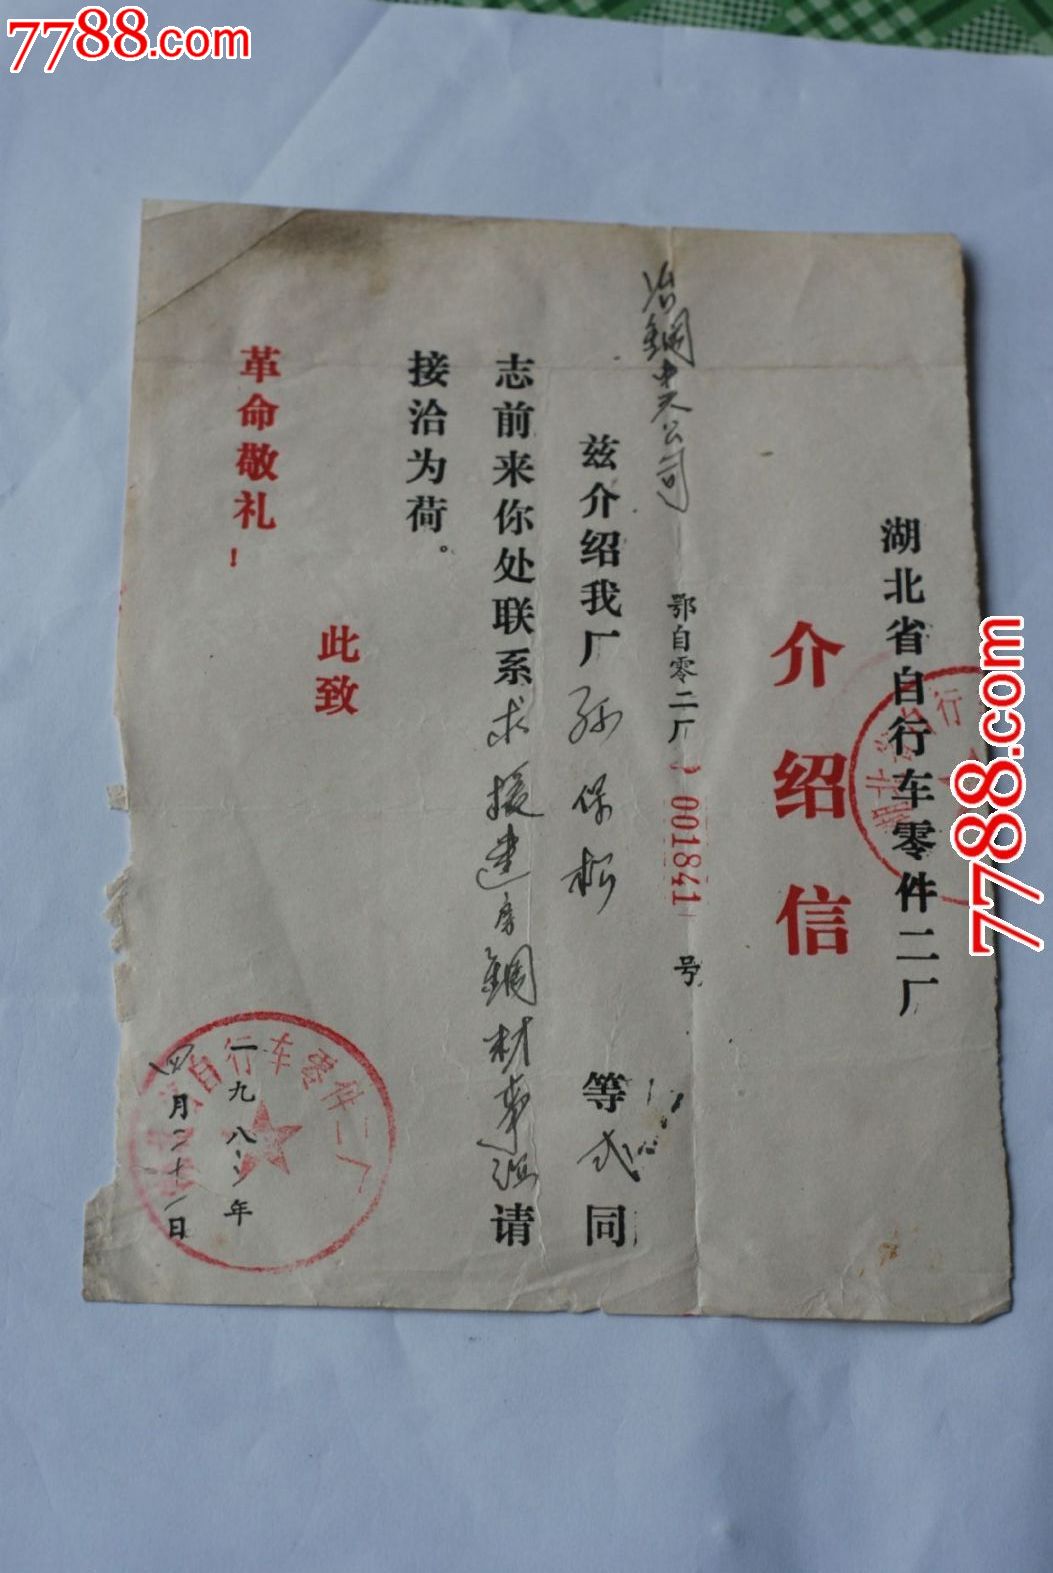 7788.com
湖北省自行车零件二厂
介绍信
鄂自零二厂 001841 号
公司
兹介绍我厂 孙保松 等 弍 同
志前来你处联系 求援建房钢材事洽 请
接洽为荷。
此致
革命敬礼!
一九八 年
四月二十 日
自行车零件二厂
7788.com